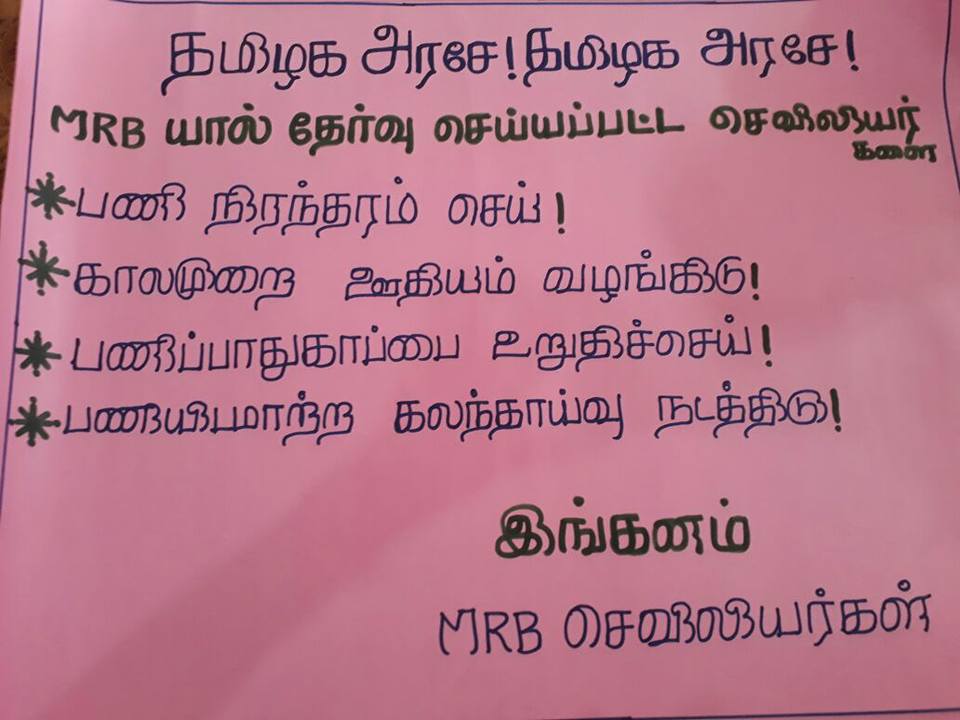 தமிழக அரசே! தமிழக அரசே!
MRB யால் தேர்வு செய்யப்பட்ட செவிலியர்
களை
* பணி நிரந்தரம் செய்!
* காலமுறை ஊதியம் வழங்கிடு!
* பணிப்பாதுகாப்பை உறுதிச்செய்!
* பணியிடமாற்ற கலந்தாய்வு நடத்திடு!
இங்கனம்
MRB செவிலியர்கள்